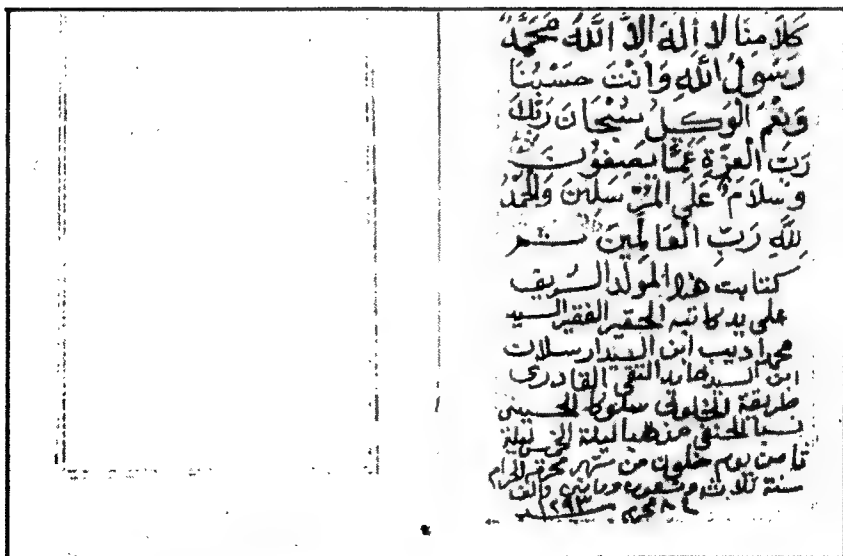 كَلَامِنَا لَا إِلَهَ إِلَّا اللَّهُ مُحَمَّدٌ
رَسُولُ اللَّهِ وَأَنْتَ حَسْبُنَا
وَنِعْمَ الْوَكِيلُ سُبْحَانَ رَبِّكَ
رَبِّ الْعِزَّةِ عَمَّا يَصِفُونَ
وَسَلَامٌ عَلَى الْمُرْسَلِينَ وَالْحَمْدُ
لِلَّهِ رَبِّ الْعَالَمِينَ تم
كتابت هذا المولد الشريف
على يد كاتبه الحقير الفقير السيد
محمد اديب ابن السيد ارسلات
ابن السيد حامد التقي القادري
طريقة الخلوتي سلوكا الحسيني
نسبا الحنفي مذهبا ليلة الخميس ليلة
ثامن يوم خلون من شهر محرم الحرام
سنة ثلاث وتسعون ومايتين والف
٨ محرم ١٢٩٣